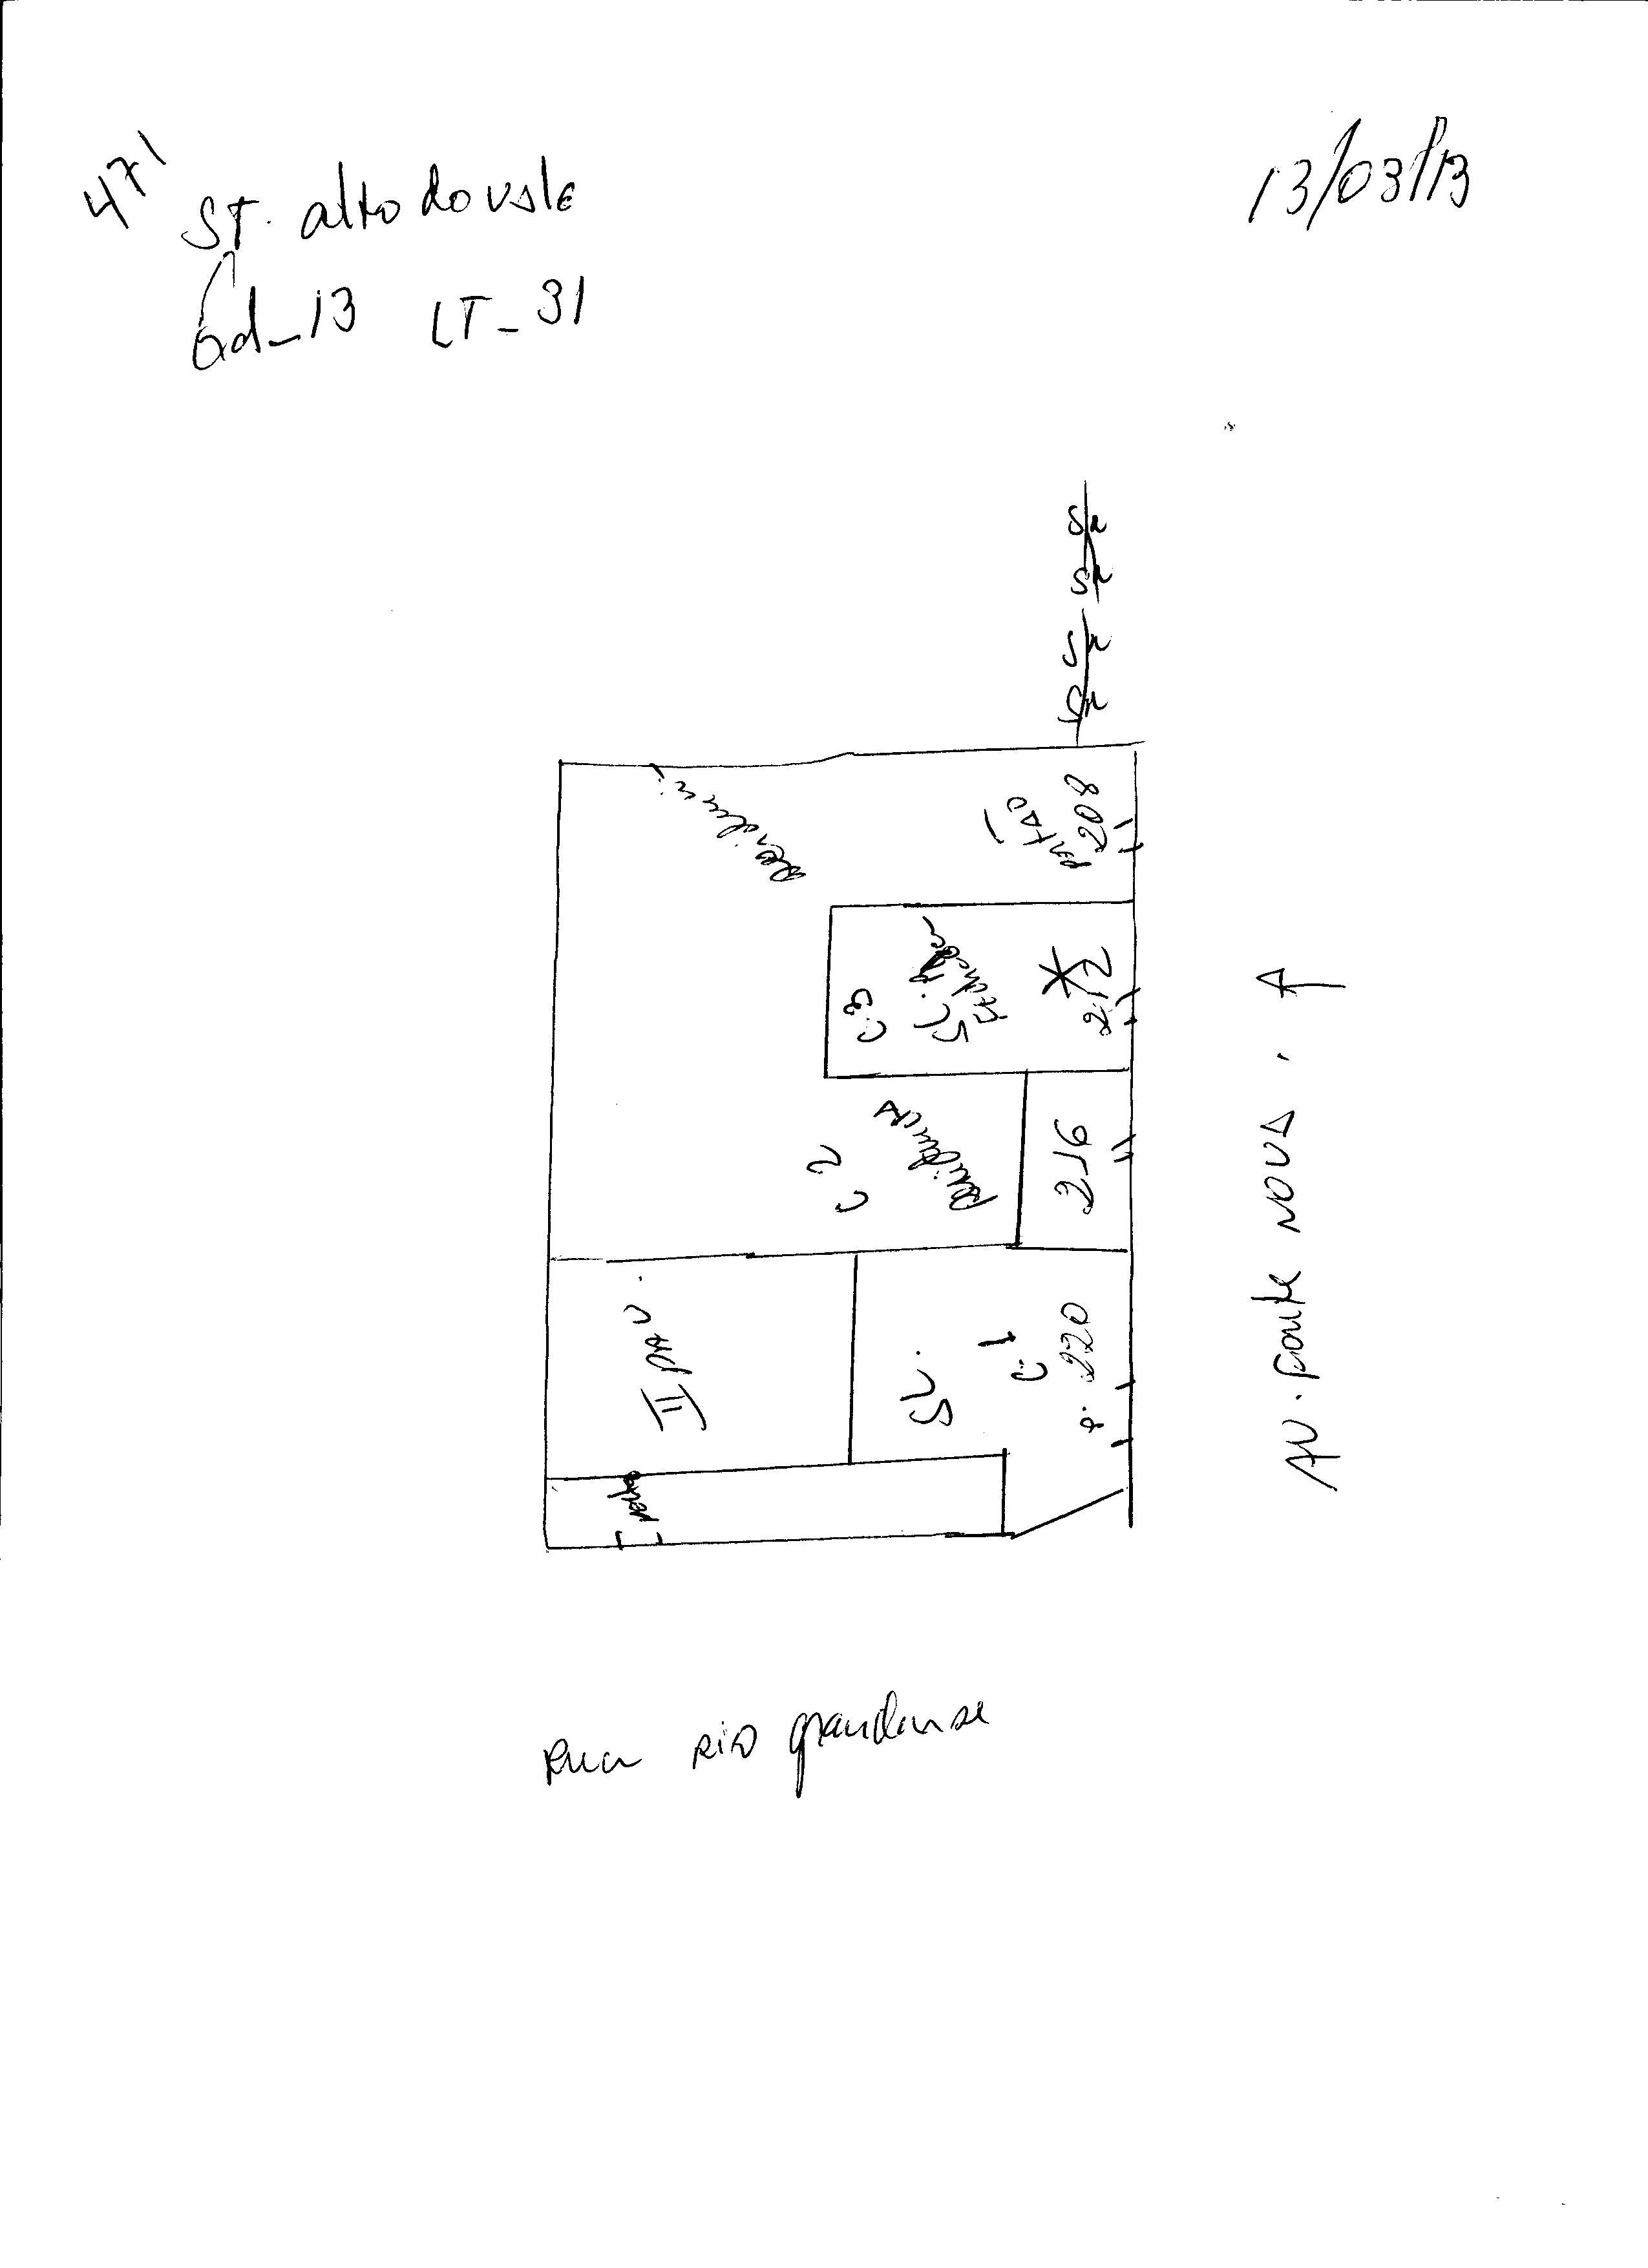 471
13/03/13
ST. alto do vale
Qd_13 LT_31
S/n
S/n
S/n
S/n
208
portão
Residencia
212
SL. p
Fechada
C.3
216
Residencia
C 2
p. 220
C. 1
SL.
II pav.
portão
AV. fonte NOVA.
Rua Rio grandense